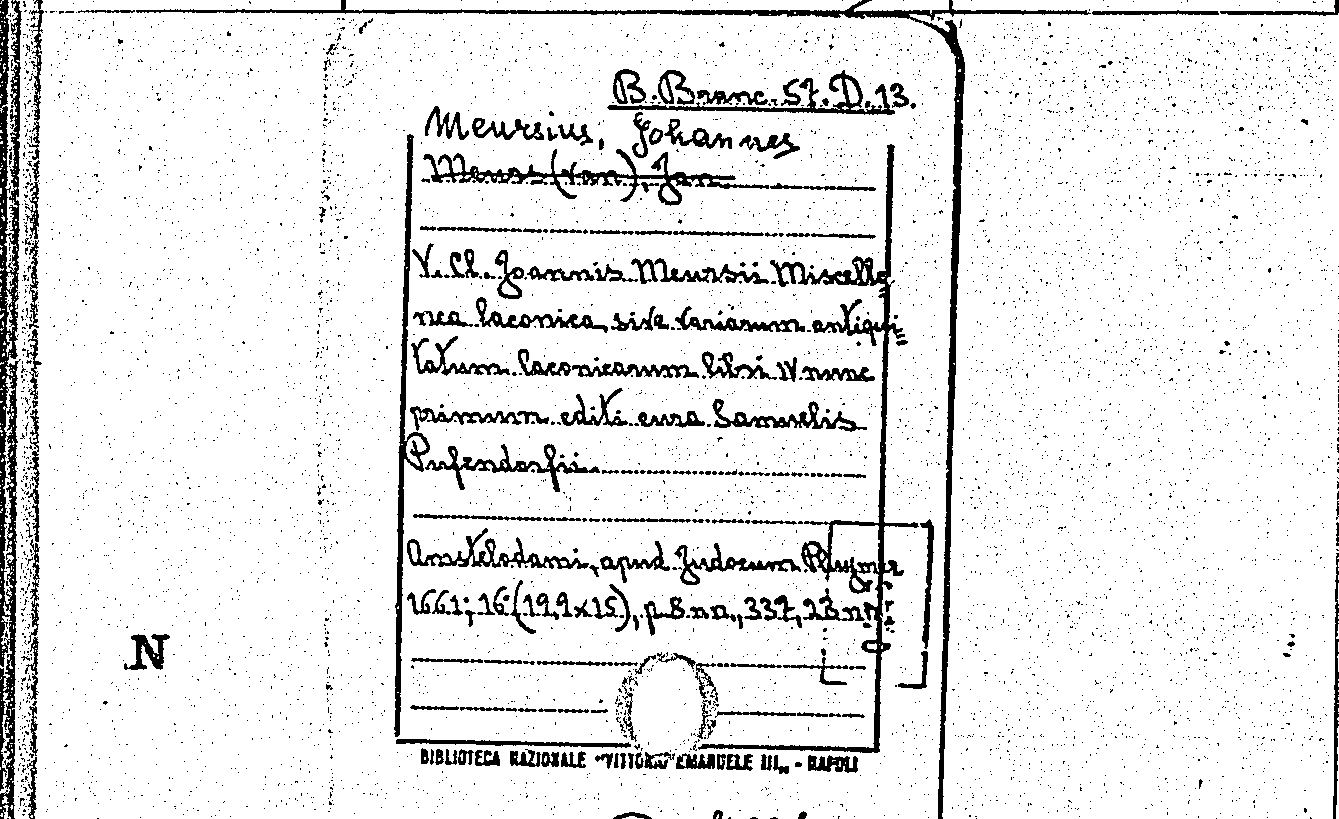 B. Branc. 57. D. 13.
Meursius, Johannes
Meurs (van), Jan
V. Cl. Joannis Meursii Miscella=
nea laconica, sive variarum antiqui=
tatum laconicarum libri IV nunc
primum editi cura Samuelis
Pufendorfii.
Amstelodami, apud Judocum Pluymer
1661; 16° (19,9x15), p. 8 nn., 337, 23 nn.
N
BIBLIOTECA NAZIONALE "VITTORIO EMANUELE III„ - NAPOLI